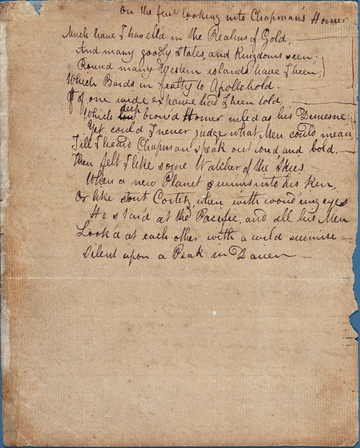 On the first looking into Chapman's Homer
Much have I travell'd in the Realms of Gold,
And many goodly States, and Kingdoms seen;
Round many Western islands have I been,
Which Bards in fealty to Apollo hold.
Oft of one wide expanse had I been told,
Which deep brow'd Homer ruled as his Demesne:
Yet could I never judge what Men could mean,
Till I heard Chapman speak out loud, and bold.
Then felt I like some Watcher of the Skies
When a new Planet swims into his Ken,
Or like stout Cortez, when with wond'ring eyes
He star'd at the Pacific, and all his Men
Look'd at each other with a wild surmise —
Silent upon a Peak in Darien —